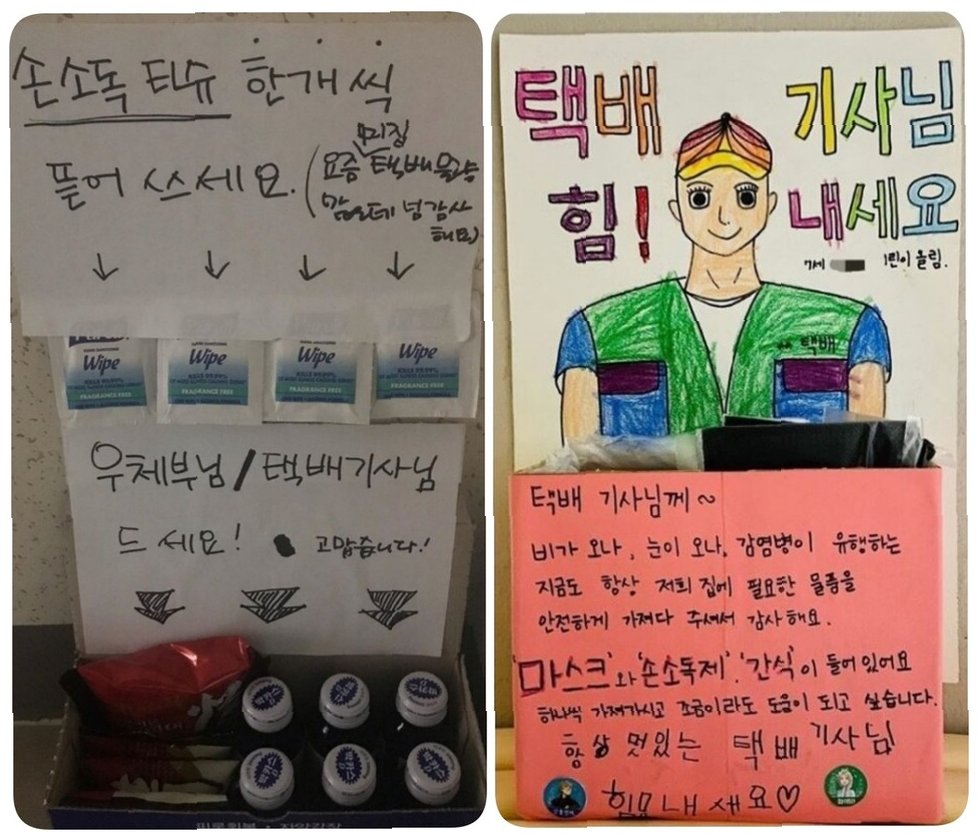 손소독 티슈 한개씩
뜯어 쓰세요. (요즘 택배물량
많은데 넘 감사
해요)
Wipe
KILLS 99.99%
FRAGRANCE FREE
Wipe
KILLS 99.99%
FRAGRANCE FREE
Wipe
KILLS 99.99%
FRAGRANCE FREE
Wipe
KILLS 99.99%
FRAGRANCE FREE
우체부님/택배기사님
드세요! 고맙습니다!
택배 기사님
힘! 내세요
7세 올림.
택배
택배 기사님께~
비가 오나, 눈이 오나, 감염병이 유행하는
지금도 항상 저희 집에 필요한 물품을
안전하게 가져다 주셔서 감사해요.
'마스크'와 '손소독제' '간식'이 들어있어요
하나씩 가져가시고 조금이라도 도움이 되고 싶습니다.
항상 멋있는 택배 기사님
힘내세요♡